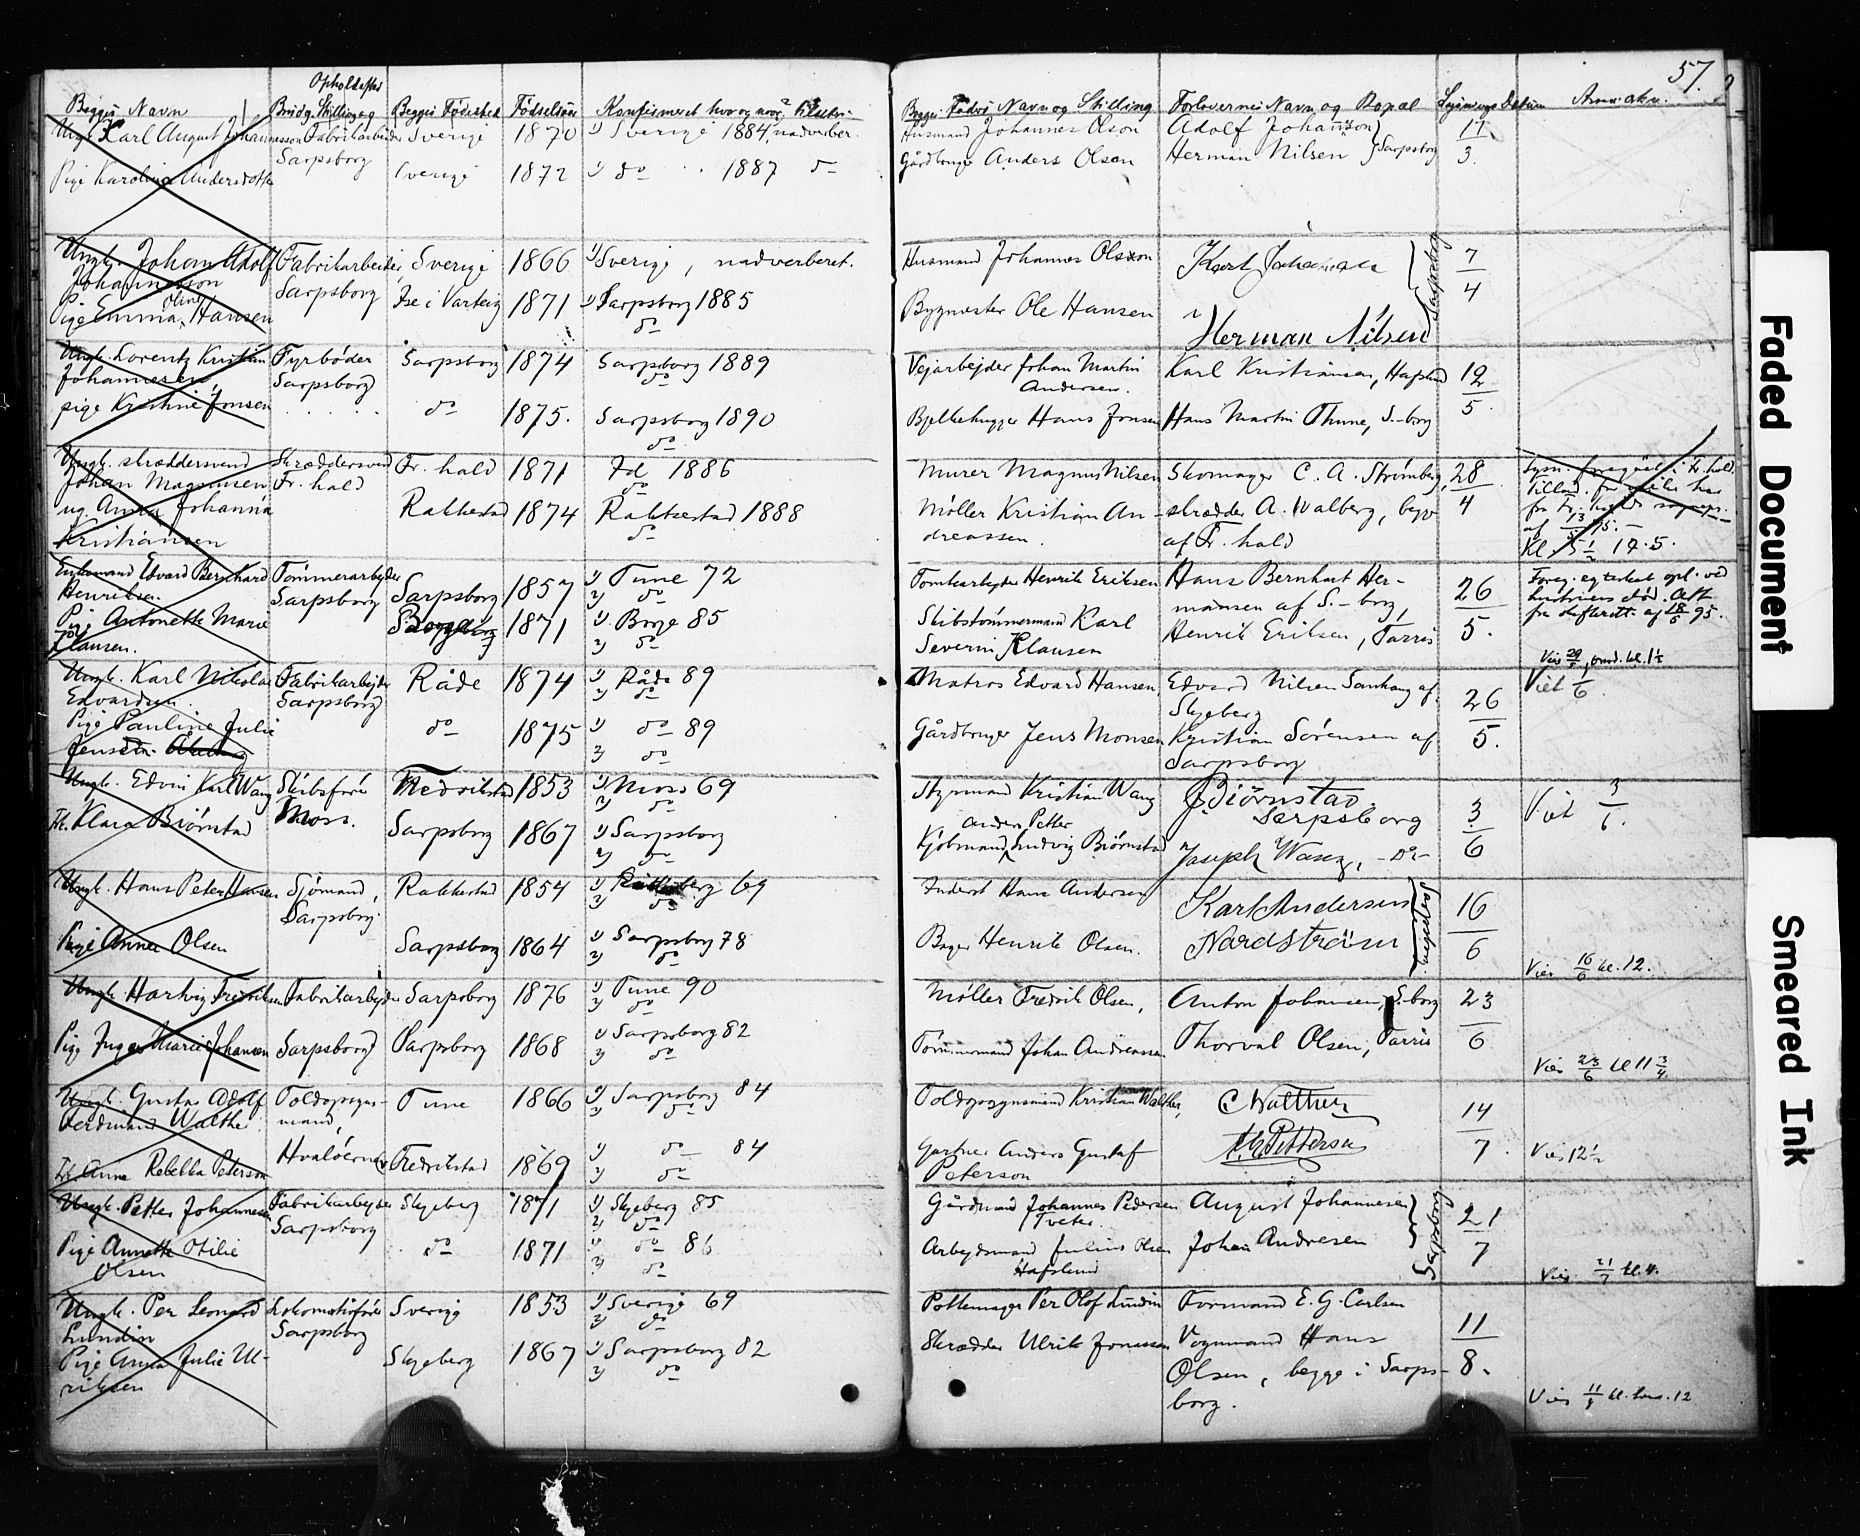 57.
Opholdssted
Begges Navn Brudg. Stilling og Begges Fødested Fødselsaar Konfirmeret hvor og naar? Begges Fædres Navn og Stilling Forlovernes Navn og Bopæl Lysnings Datum Anm.
Ungk. Karl August Johannesson Fabrikarbeider Sverige 1870 1) Sverige 1884, nadverber. Husmand Johannes Olson Adolf Johansson 17
Sarpsborg Gårdbruger Anders Olsen Herman Nilsen } Sarpsborg 3.
Pige Karolina Andersdotter Sverige 1872 1) do 1887 do
Ungk. Johan Adolf Fabrikarbeider Sverige 1866 1) Sverige, nadverberet. Husmand Johannes Olsson Karl Johansen 7
Johannesson Sarpsborg 4
Pige Emma Oline Hansen Ise i Varteig 1871 1) Sarpsborg 1885 Bygmester Ole Hansen Sarpsborg
do Herman Nilsen
Ungk. Lorentz Kristian Fyrbøder Sarpsborg 1874 Sarpsborg 1889 Vejarbejder Johan Martin Karl Kristiansen, Hafslund 12
Johannesen Sarpsborg do Andersen. 5.
pige Kristine Jonsen do 1875. Sarpsborg 1890 Bjelkehugger Hans Jonsen Hans Martin Thune, S-borg
do
Ungk. skræddersvend Skræddersvend Fr. hald 1871 Id 1886 Murer Magnus Nilsen Skomager C. A. Strømberg, 28
Johan Magnusen Fr. hald do 4
ug. Anna Johanna Rakkestad 1874 Rakkestad 1888 Møller Kristian An- skrædder A. Walberg, begge
Kristiansen do dreassen. af Fr. hald
Kl. 5½ 19.5.
Enkemand Edvard Bernhard Tømmerarbejder Sarpsborg 1857 1) Tune 72 Tomtearbejder Henrik Eriksen Hans Bernhart Her- 26
Henriksen Sarpsborg 2) do mansen af S.-borg, 5.
Pige Antonette Marie Borge 1871 1) Borge 85 Skibstømmermand Karl Henrik Eriksen, Tarris
Klausen. 2) do Severin Klausen
Foreg. egteskab opl. ved
hustruens død. Att.
fra skifterett. af 18/5 95.
Vies 29/5, omd. kl. 1½
Ungk. Karl Nikolai Fabrikarbejder Råde 1874 1) Råde 89 Matros Edvard Hansen Edvard Nilsen Sanhaug af 26 Viet 1/6.
Edvardsen. Sarpsborg 2) do Skjeberg 5.
Pige Pauline Julie do 1875 1) do 89 Gårdbruger Jens Monsen Kristian Sørensen af
Jensen 2) do Sarpsborg
Ungk. Edvin Karl Wang Skibsfører Fredrikstad 1853 1) Moss 69 Styrmand Kristian Wang J. Biørnstad 3 Viet 3/6.
Moss. 2) do Sarpsborg 6
Frk. Klara Biørnstad Sarpsborg 1867 1) Sarpsborg Kjøbmand Anders Petter Ludvig Biørnstad Joseph Wang, -do-
2) do
Ungk. Hans Peter Hansen Sjømand, Rakkestad 1854 1) 69 Inderst Hans Andersen Karl Andersen 16
Sarpsborg. 2) do 6
Pige Anna Olsen Sarpsborg 1864 1) Sarpsborg 78 Bager Henrik Olsen. Nordström Vies 16/6 kl. 12.
2) do
Ungk. Hartvig Fredriksen Fabrikarbejder Sarpsborg 1876 1) Tune 90 Møller Fredrik Olsen, Anton Johansen, S-borg 23
2) do 6
Pige Inga Marie Johansen Sarpsborg Sarpsborg 1868 1) Sarpsborg 82 Tømmermand Johan Andreassen Thorval Olsen, Tarris Vies 23/6 kl 11 3/4
2) do
Ungk. Gustav Adolf Toldopsyns- Tune 1866 1) Sarpsborg 84 Toldopsynsmand Kristian Walther, C Walther 14
Ferdinand Walthe mand, 2) do 7.
Frk Anna Rebekka Peterson Hvaløerne Fredrikstad 1869 1) do 84 Gartner Anders Gustaf A. G. Petterson Vies 12½
2) do Peterson
Ungk. Petter Johannesen Fabrikarbejder Skjeberg 1871 1) Skjeberg 85 Gårdmand Johannes Pedersen August Johannesen 21
Sarpsborg 2) do Tveter. 7
Pige Annette Otilie do 1871 1) do 86 Arbejdsmand Julius Olsen Johan Andresen Sarpsborg
Olsen 2) do Hafslund Vies 21/7 kl. 4.
Ungk. Per Leonard Lokomotivfører Sverige 1853 1) Sverige 69 Pottemager Per Olof Lundin Formand E. G. Carlsen 11
Lundin Sarpsborg 2) do 8.
Pige Anna Julie Ul- Skjeberg 1867 1) Sarpsborg 82 Skrædder Ulrik Jonassen Vognmand Hans
riksen 2) do Olsen, begge i Sarps-
borg. Vies 11/8 kl. 12
Faded Document
Smeared Ink